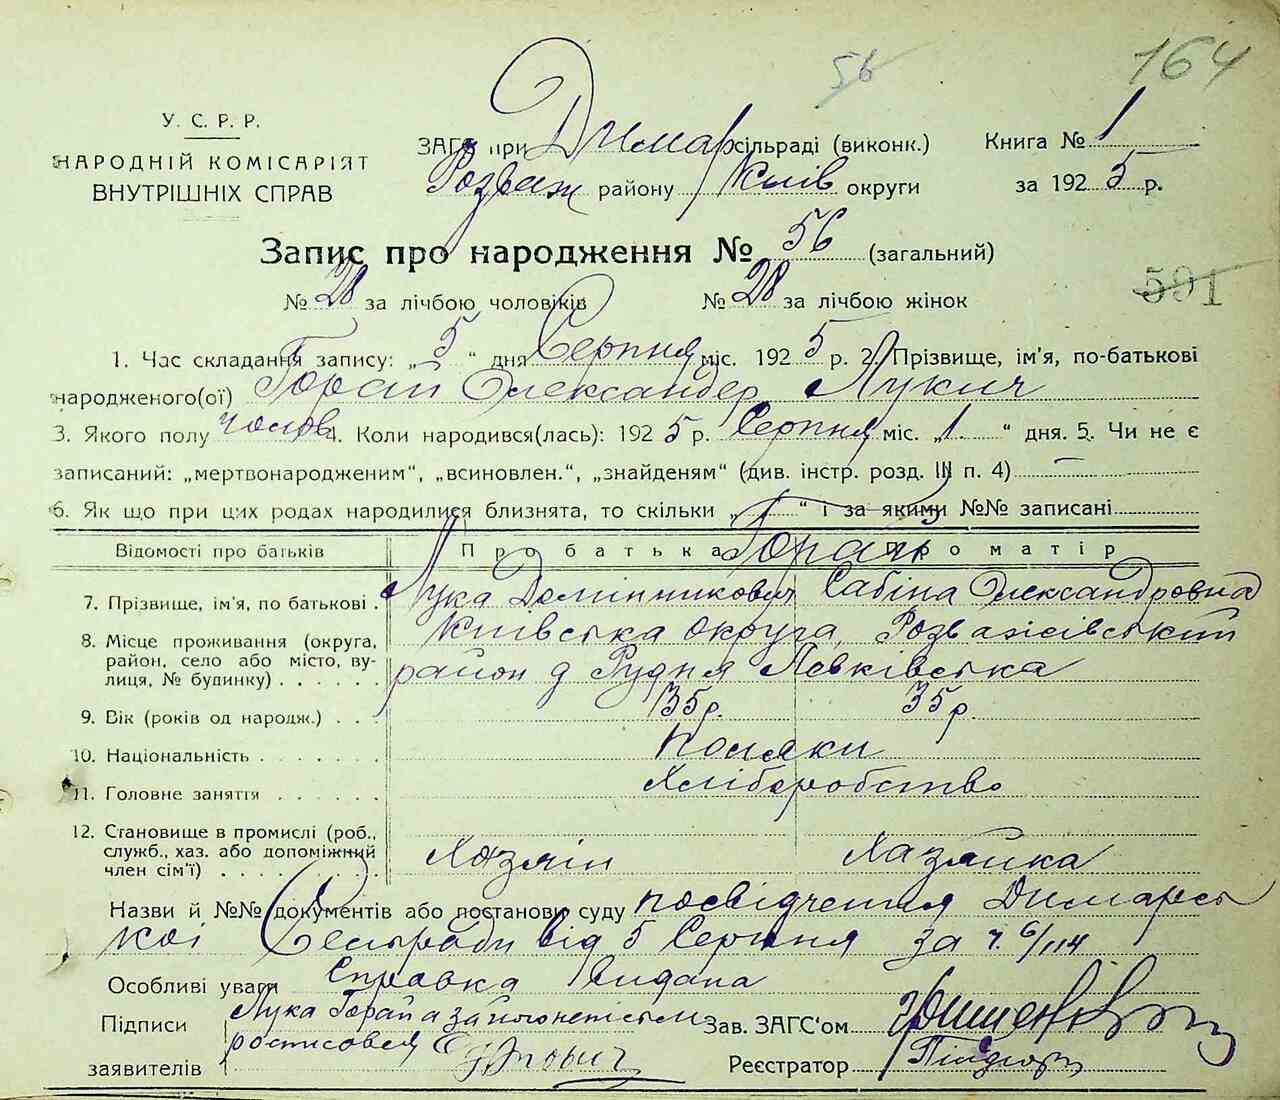 56
164
У. С. Р. Р.
НАРОДНІЙ КОМІСАРІЯТ
ВНУТРІШНІХ СПРАВ
ЗАГС при Димар сільраді (виконк.)
Розваж району Київ округи
Книга № 1
за 1925 р.
Запис про народження № 56 (загальний)
№ 28 за лічбою чоловіків № 28 за лічбою жінок
591
1. Час складання запису: „5“ дня Серпня міс. 1925 р. 2. Прізвище, ім'я, по-батькові
народженого(ої) Горай Олександер Лукич
3. Якого полу чолов 4. Коли народився(лась): 1925 р. Серпня міс. „1“ дня. 5. Чи не є
записаний: „мертвонародженим“, „всиновлен.“, „знайденям“ (див. інстр. розд. III п. 4) —
6. Як що при цих родах народилися близнята, то скільки „ “ і за якими №№ записані
Відомості про батьків Про батька Про матір
Горай
7. Прізвище, ім'я, по батькові . Лука Домінникович Сабіна Олександровна
8. Місце проживання (округа, район, село або місто, вулиця, № будинку) . . . . . Київська округа, Розважівський
район д Рудня Левківська
9. Вік (років од народж.) . . . 35р. 35р
10. Національність . . . . . . . поляки
11. Головне заняття . . . . . . Хліборобство
12. Становище в промислі (роб., служб., хаз. або допоміжний член сім'ї) . . . . . . . . Хазяін Хазяйка
Назви й №№ документів або постанови суду посвідчення Димарсь
коі Сельради від 5 Серпня за ч. 6/114
Особливі уваги Справка видана
Підписи
заявителів
Лука Горай а за
Зав. ЗАГС'ом
Реєстратор